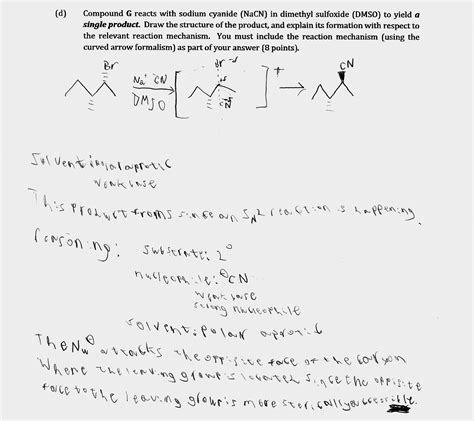 (d) Compound G reacts with sodium cyanide (NaCN) in dimethyl sulfoxide (DMSO) to yield a
single product. Draw the structure of the product, and explain its formation with respect to
the relevant reaction mechanism. You must include the reaction mechanism (using the
curved arrow formalism) as part of your answer (8 points).
Br Na+ CN Br CN
DMSO CN
Solvent: polar aprotic
weak base
This product froms since an SN2 reaction is happening
Reasoning: substrate: 2°
nucleophile: ⊖CN
weak base
strong nucleophile
solvent: polar aprotic
The Nu⊖ attacks the oppisite face of the carbon
where the leaving group is located since the oppisite
face to the leaving group is more sterically accessible.